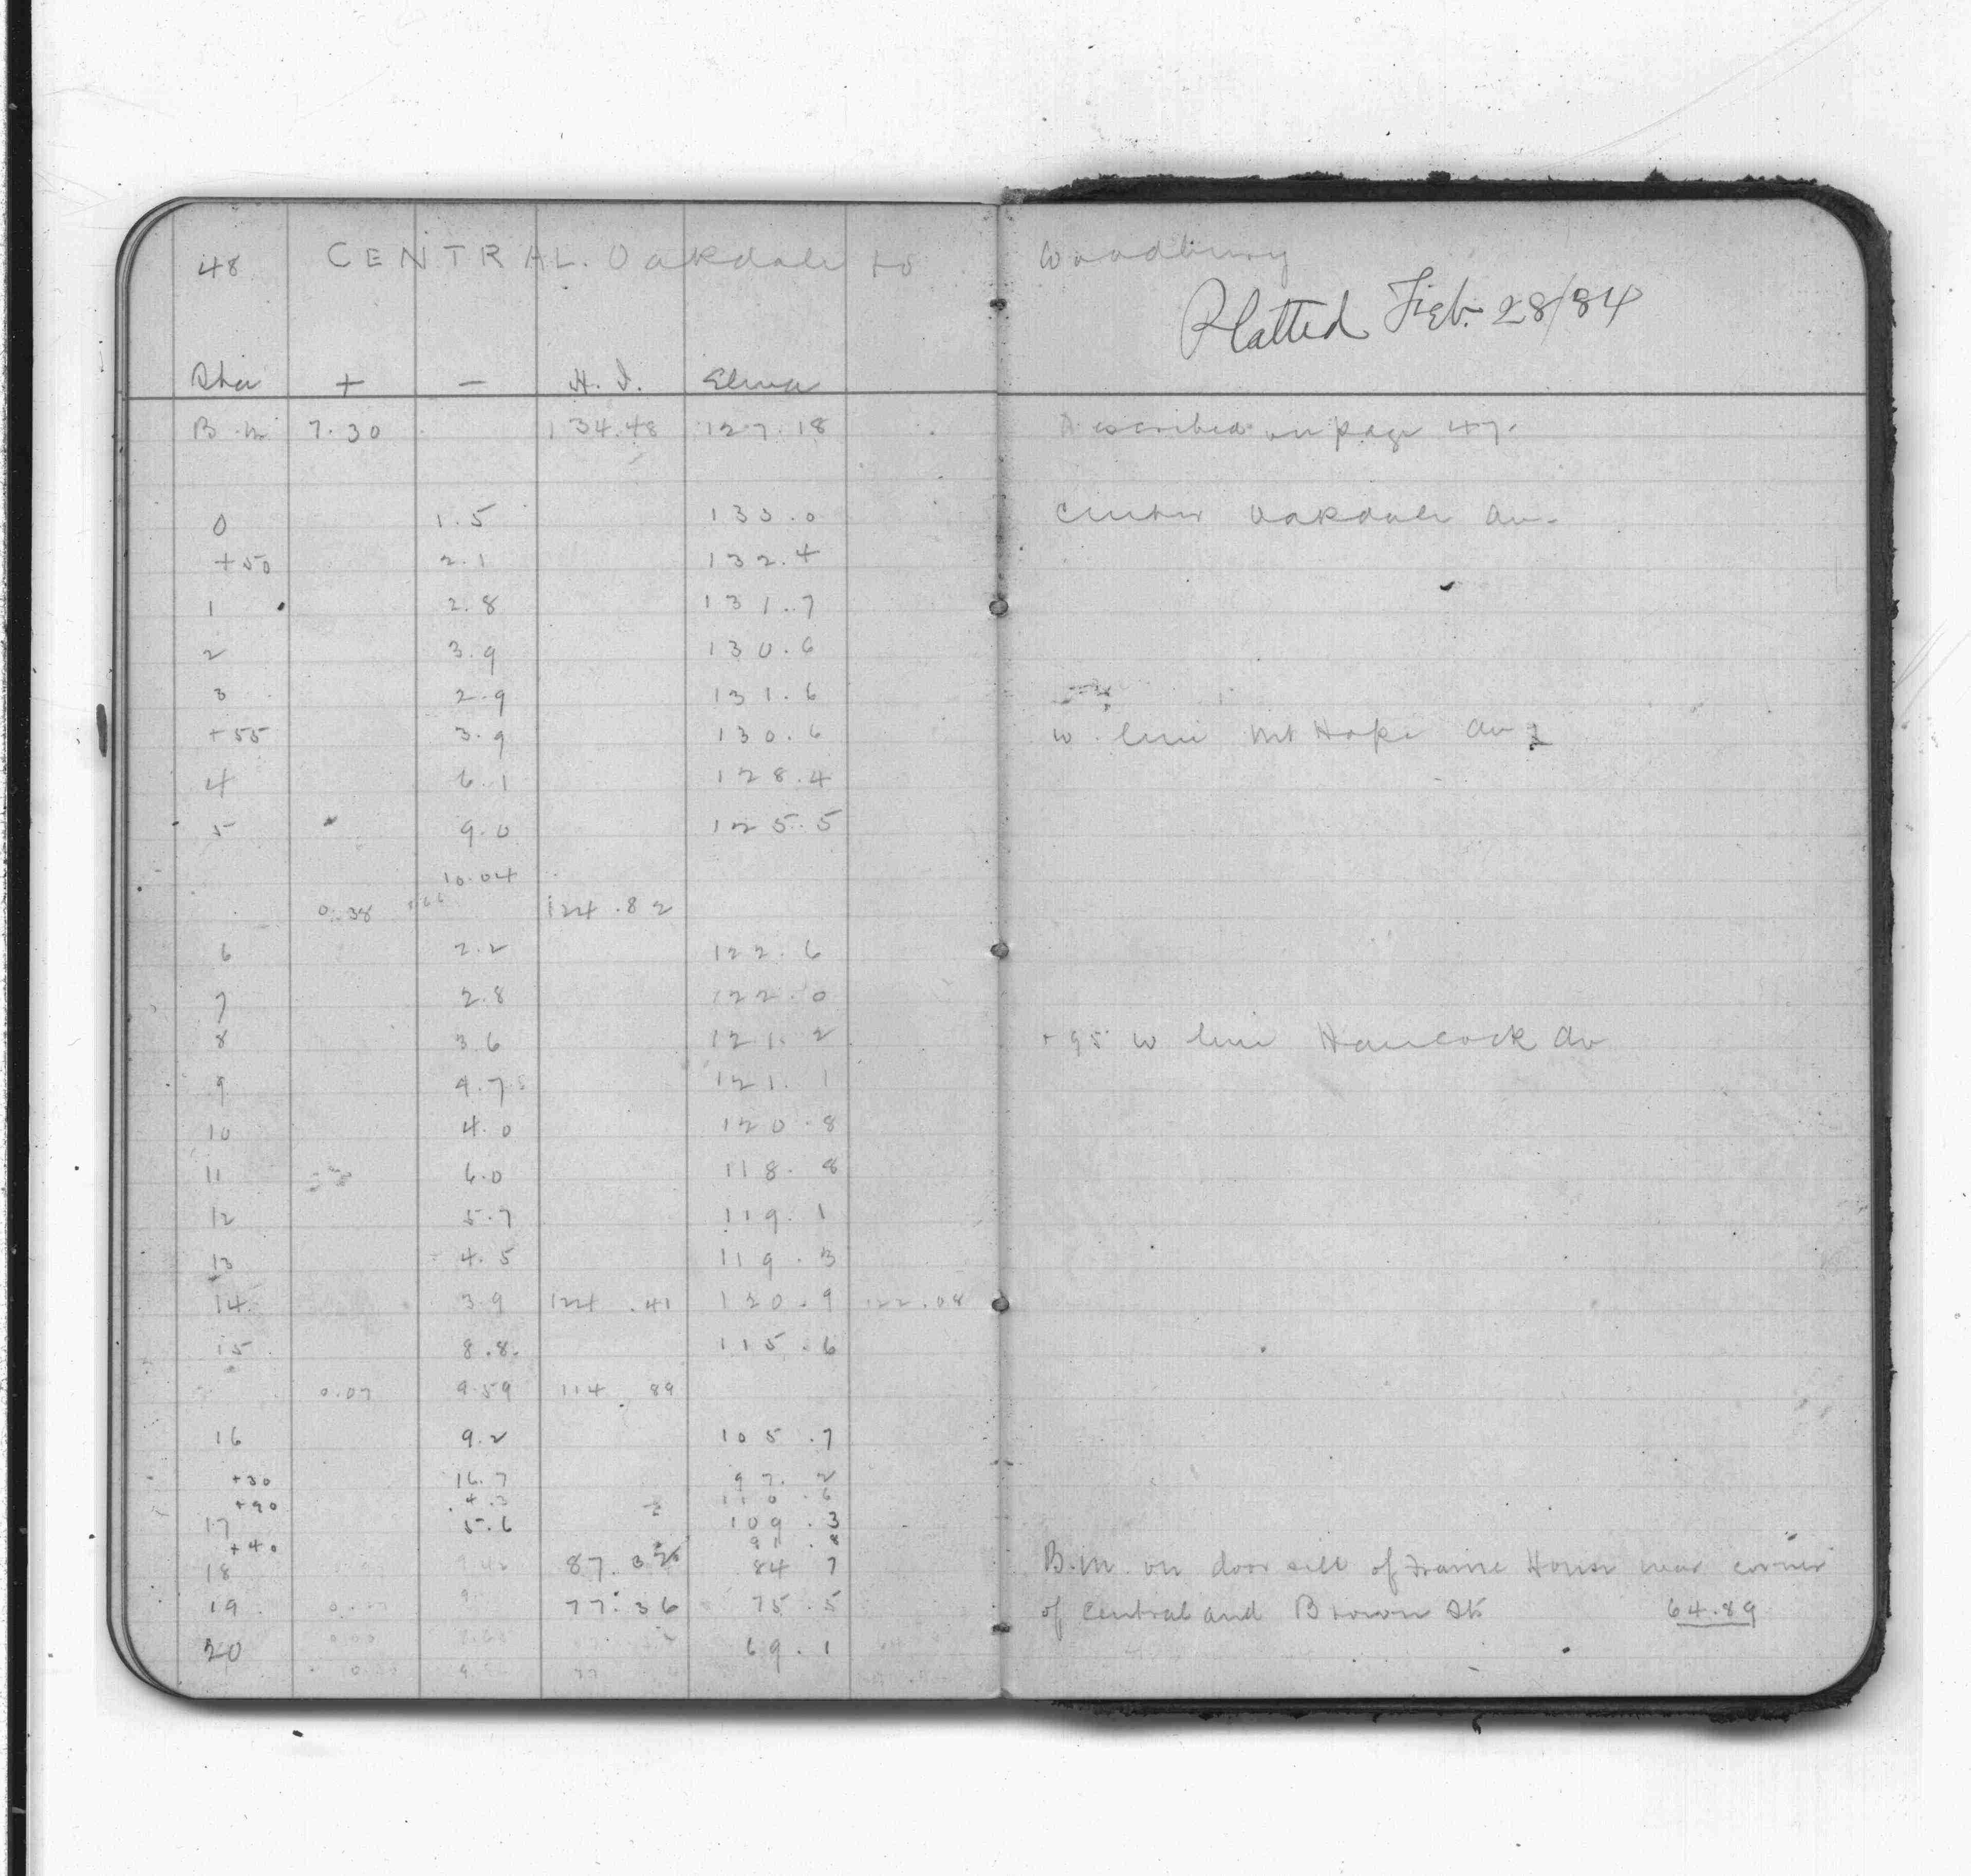 48 CENTRAL. Oakdale to Woodbury
Platted Feb. 28/84
Sta + - H. I. Eleva
B.m 7.30 134.48 127.18 Described on page 47.
0 1.5 133.0 Center Oakdale Av.
+50 2.1 132.4
1 2.8 131.7
2 3.9 130.6
3 2.9 131.6
+55 3.9 130.6 W. line Mt Hope Av
4 6.1 128.4
5 9.0 125.5
10.04
0.38 124.82
6 2.2 122.6
7 2.8 122.0
8 3.6 121.2 +95 W line Hancock Av
9 121.1
10 4.0 120.8
11 6.0 118.8
12 5.7 119.1
13 4.5 119.3
14 3.9 124.41 120.9
15 8.8 115.6
0.07 9.59 114 89
16 9.2 105.7
+30 97.2
+90 4.3 110.6
17 5.6 109.3
+40 91.8
18 9.42 84 7 B.M. on door sill of Frame House near corner
19 77.36 75.5 of Central and Brown Sts 64.89
20 69.1